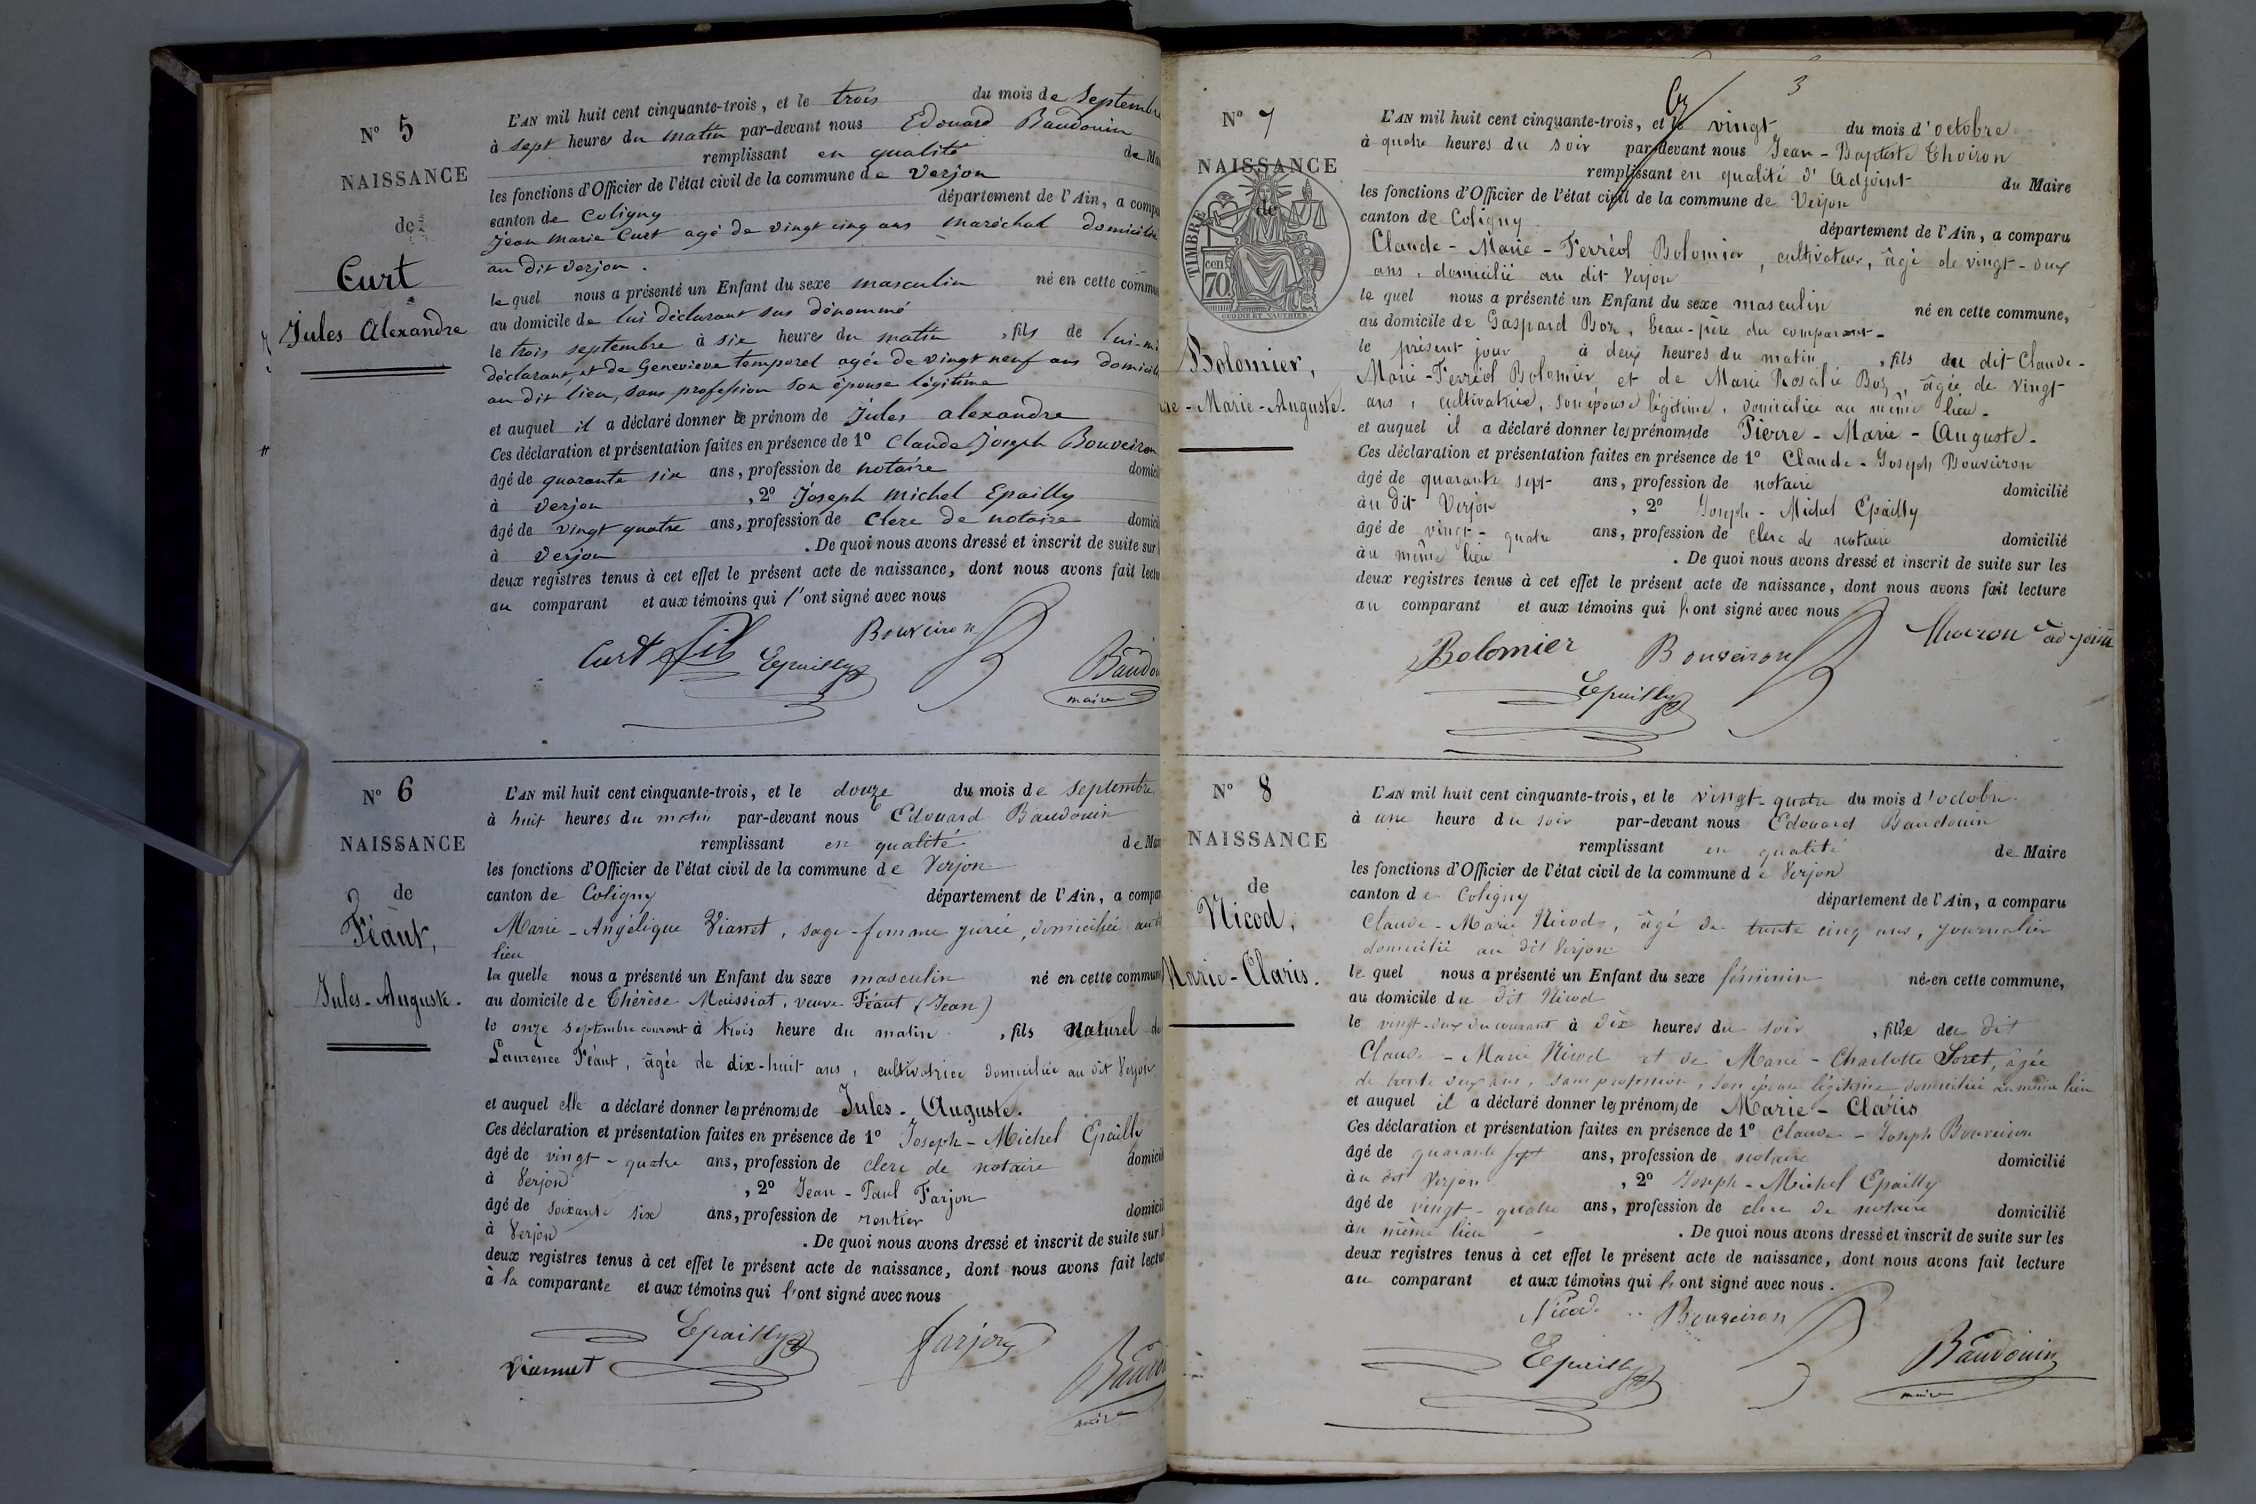 N° 5
NAISSANCE
de
Curt
Jules Alexandre
L'AN mil huit cent cinquante-trois, et le trois du mois de Septembre
à sept heures du matin par-devant nous Edouard Baudouin
remplissant en qualité de Mai
les fonctions d'Officier de l'état civil de la commune de Verjon
canton de Coligny département de l'Ain, a compa
Jean Marie Curt agé de vingt cinq ans maréchal domicilié
au dit Verjon.
le quel nous a présenté un Enfant du sexe masculin né en cette commu
au domicile de lui déclarant sus dénommé
le trois septembre à six heures du matin, fils de lui-mê
déclarant, et de Genevieve temporel agée de vingt neuf ans domicili
au dit lieu, sans profession son épouse légitime
et auquel il a déclaré donner le prénom de Jules alexandre
Ces déclaration et présentation faites en présence de 1° Claude Joseph Bouveiron
âgé de quarante six ans, profession de notaire domicil
à Verjon, 2° Joseph michel Epailly
âgé de vingt quatre ans, profession de Clerc de notaire domicil
à Verjon. De quoi nous avons dressé et inscrit de suite sur l
deux registres tenus à cet effet le présent acte de naissance, dont nous avons fait lectu
au comparant et aux témoins qui l'ont signé avec nous
Curt fils Epailly Bouveiron Baudou
maire
N° 6
NAISSANCE
de
Féaut,
Jules-Auguste.
L'AN mil huit cent cinquante-trois, et le douze du mois de septembre
à huit heures du matin par-devant nous Edouard Baudouin
remplissant en qualité de Mai
les fonctions d'Officier de l'état civil de la commune de Verjon
canton de Coligny département de l'Ain, a compar
Marie-Angélique Viannet, sage-femme jurée, domiciliée au
lieu
la quelle nous a présenté un Enfant du sexe masculin né en cette commun
au domicile de Thérèse Moissiat, veuve Féaut (Jean)
le onze septembre courant à trois heure du matin, fils naturel de
Laurence Féaut, âgée de dix-huit ans, cultivatrice domiciliée au dit Verjon
et auquel elle a déclaré donner les prénoms de Jules-Auguste.
Ces déclaration et présentation faites en présence de 1° Joseph-Michel Epailly
âgé de vingt-quatre ans, profession de clerc de notaire domicil
à Verjon, 2° Jean-Paul Farjon
âgé de soixante six ans, profession de rentier domicil
à Verjon. De quoi nous avons dressé et inscrit de suite sur l
deux registres tenus à cet effet le présent acte de naissance, dont nous avons fait lectur
à la comparante et aux témoins qui l'ont signé avec nous
Epailly farjon
Viannet Baudo
maire
3
N° 7
NAISSANCE
de
TIMBRE
cen
70
Bolomier,
re-Marie-Auguste.
L'AN mil huit cent cinquante-trois, et le vingt du mois d'octobre
à quatre heures du soir par-devant nous Jean-Baptiste Thoiron
remplissant en qualité d'Adjoint du Maire
les fonctions d'Officier de l'état civil de la commune de Verjon
canton de Coligny département de l'Ain, a comparu
Claude-Marie-Ferréol Bolomier, cultivateur, âgé de vingt-deux
ans, domicilié au dit Verjon
le quel nous a présenté un Enfant du sexe masculin né en cette commune,
au domicile de Gaspard Boz, beau-père du comparant-
le présent jour à deux heures du matin, fils du dit Claude-
Marie-Ferréol Bolomier et de Marie Rosalie Boz, âgée de vingt
ans, cultivatrice, son épouse légitime, domiciliée au même lieu-
et auquel il a déclaré donner les prénoms de Pierre-Marie-Auguste-
Ces déclaration et présentation faites en présence de 1° Claude-Joseph Bouveiron
âgé de quarante sept ans, profession de notaire domicilié
au dit Verjon, 2° Joseph-Michel Epailly
âgé de vingt-quatre ans, profession de clerc de notaire domicilié
au même lieu. De quoi nous avons dressé et inscrit de suite sur les
deux registres tenus à cet effet le présent acte de naissance, dont nous avons fait lecture
au comparant et aux témoins qui l'ont signé avec nous
Bolomier Bouveiron Thoiron adjoint
Epailly
N° 8
NAISSANCE
de
Nicod,
Marie-Claris.
L'AN mil huit cent cinquante-trois, et le vingt-quatre du mois d'octobre
à une heure du soir par-devant nous Edouard Baudouin
remplissant en qualité de Maire
les fonctions d'Officier de l'état civil de la commune de Verjon
canton de Coligny département de l'Ain, a comparu
Claude-Marie Nicod, âgé de trente cinq ans, journalier
domicilié au dit Verjon
le quel nous a présenté un Enfant du sexe féminin né en cette commune,
au domicile du dit Nicod
le vingt-deux du courant à dix heures du soir, fille du dit
Claude-Marie Nicod et de Marie-Charlotte Soret, âgée
de trente deux ans, sans profession, son épouse légitime domiciliée au même lieu
et auquel il a déclaré donner les prénoms de Marie-Claris
Ces déclaration et présentation faites en présence de 1° Claude-Joseph Bouveiron
âgé de quarante sept ans, profession de notaire domicilié
au dit Verjon, 2° Joseph-Michel Epailly
âgé de vingt-quatre ans, profession de clerc de notaire domicilié
au même lieu. De quoi nous avons dressé et inscrit de suite sur les
deux registres tenus à cet effet le présent acte de naissance, dont nous avons fait lecture
au comparant et aux témoins qui l'ont signé avec nous.
Nicod Bouveiron
Epailly Baudouin
maire